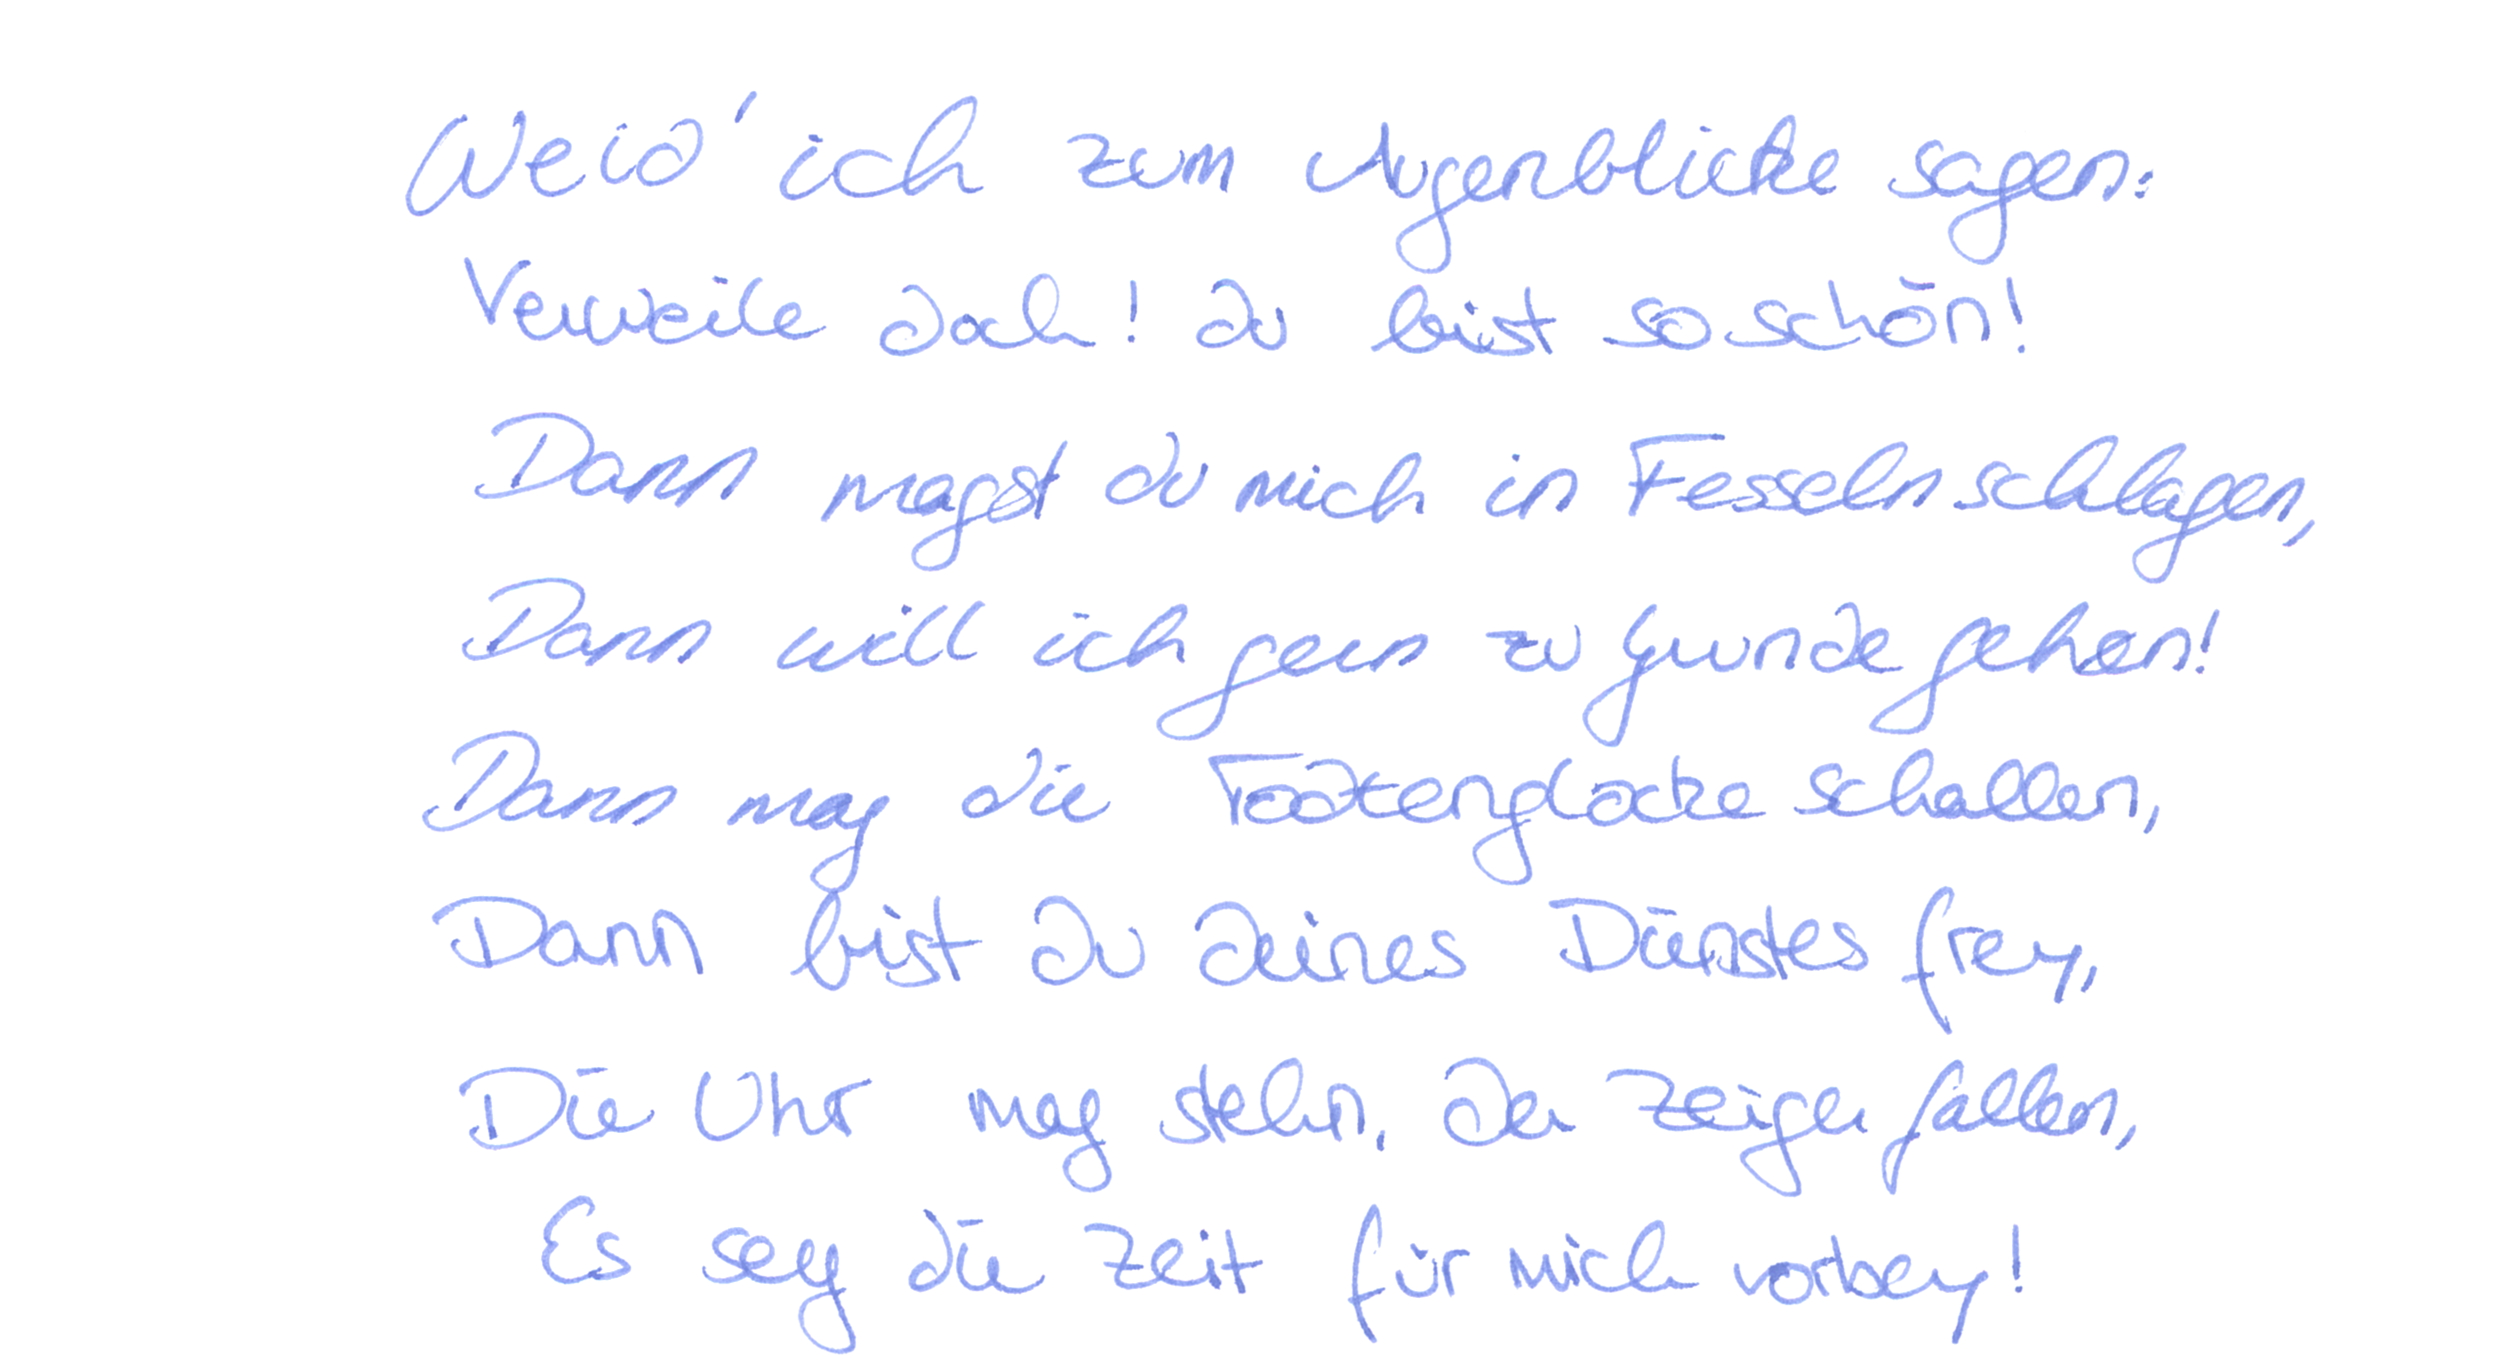 Werd' ich zum Augenblicke sagen:
Verweile doch! du bist so schön!
Dann magst du mich in Fesseln schlagen,
Dann will ich gern zu grunde gehen!
Dann mag die Todtenglocke schallen,
Dann bist du deines Dienstes frey,
Die Uhr mag stehn, der Zeiger fallen,
Es sey die Zeit für mich vorbey!